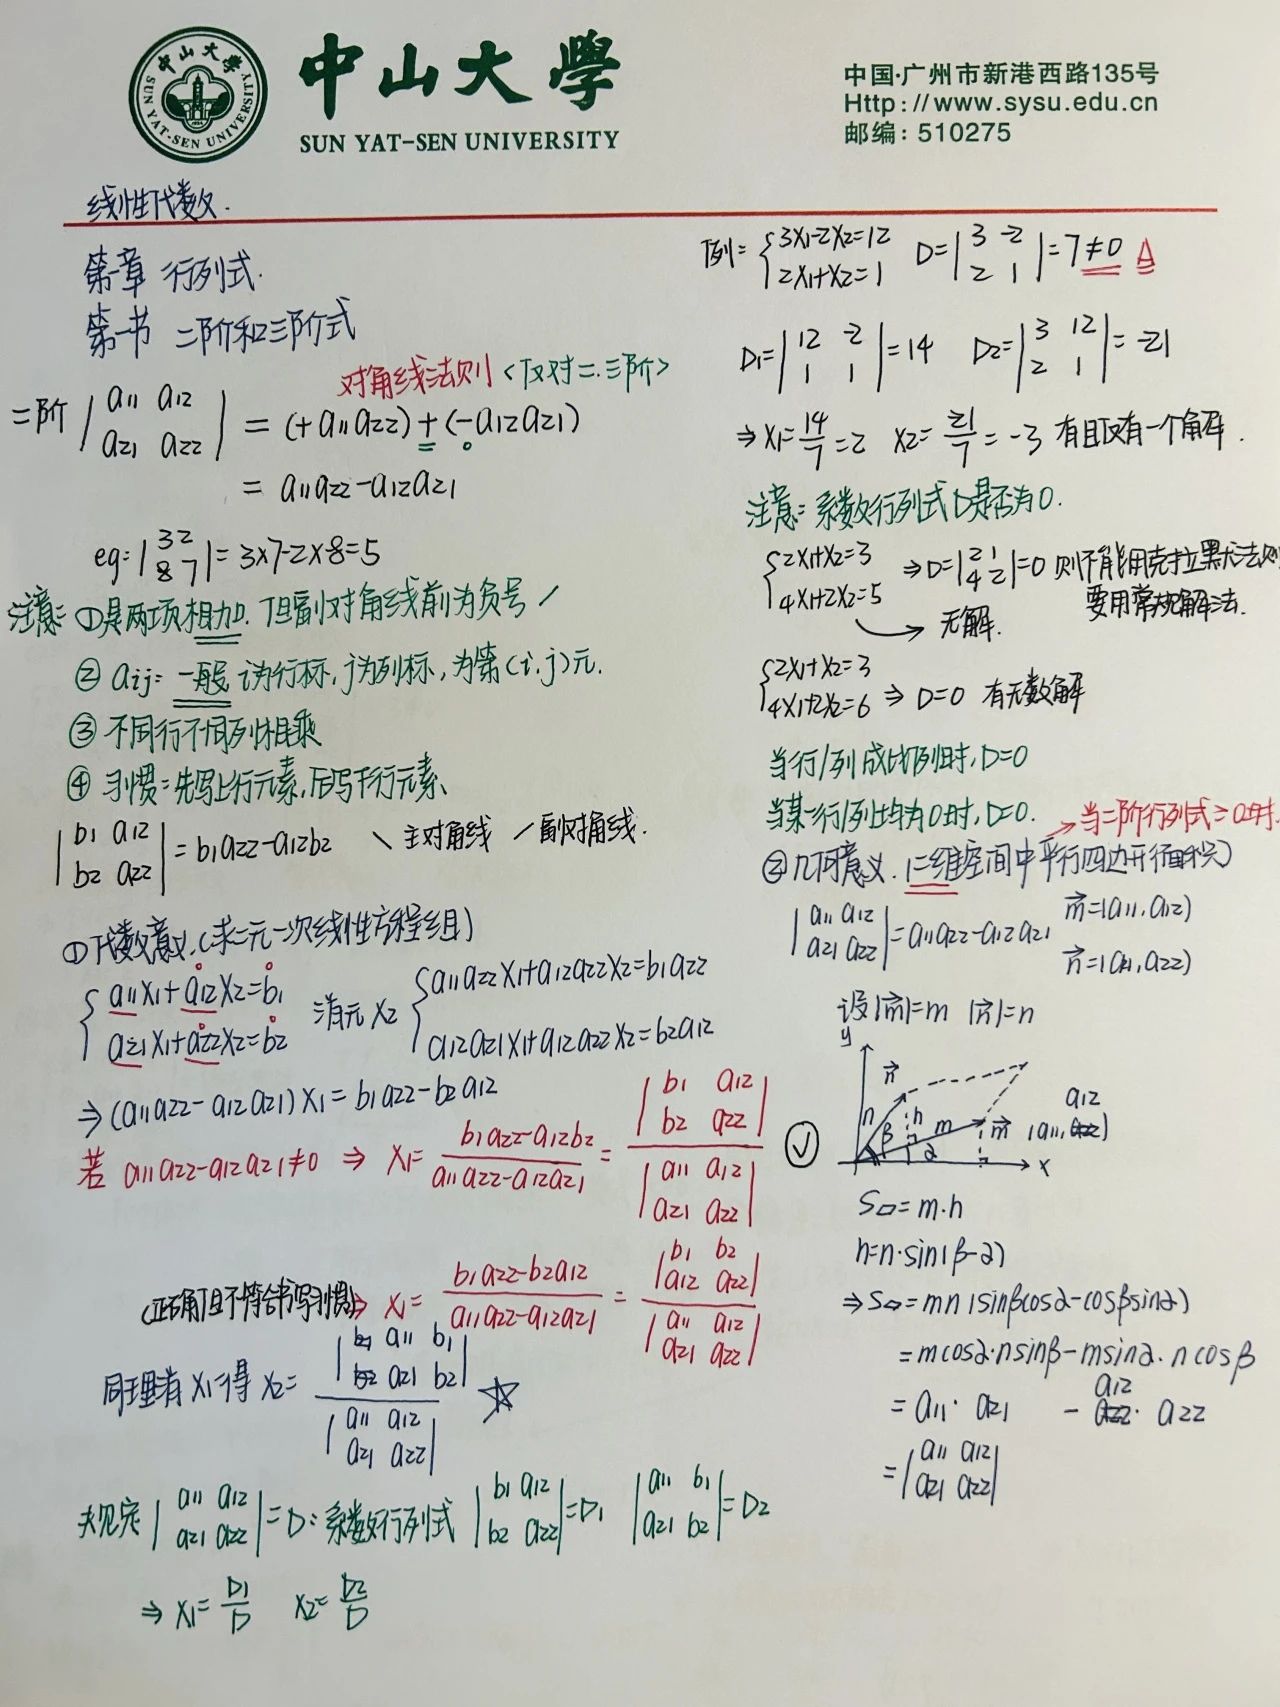 中山大學
SUN YAT-SEN UNIVERSITY
中山大學
SUN YAT-SEN UNIVERSITY
中国·广州市新港西路135号
Http://www.sysu.edu.cn
邮编：510275
线性代数.
第一章 行列式.
第一节 二阶和三阶式
对角线法则<仅对二.三阶>
二阶 |a11 a12
a21 a22| = (+a11a22)+(-a12a21)
= a11a22-a12a21
eg: |3 2
8 7| = 3×7-2×8=5
注意: ①是两项相加. 但副对角线前为负号 /
② aij: 一般 i为行标, j为列标, 为第(i,j)元.
③ 不同行不同列相乘
④ 习惯: 先写上行元素,后写下行元素.
|b1 a12
b2 a22| = b1a22-a12b2 \ 主对角线 / 副对角线.
①代数意义.(求二元一次线性方程组)
{a11x1+a12x2=b1
a21x1+a22x2=b2 消元 x2 {a11a22x1+a12a22x2=b1a22
a12a21x1+a12a22x2=b2a12
⇒(a11a22-a12a21)x1=b1a22-b2a12
若 a11a22-a12a21≠0 ⇒ x1= (b1a22-a12b2)/(a11a22-a12a21) = |b1 a12
b2 a22| / |a11 a12
a21 a22| √
(正确但不符合书写习惯)⇒ x1= (b1a22-b2a12)/(a11a22-a12a21) = |b1 b2
a12 a22| / |a11 a12
a21 a22|
同理消 x1得 x2= |a11 b1
a21 b2| / |a11 a12
a21 a22| ☆
规定 |a11 a12
a21 a22|=D: 系数行列式 |b1 a12
b2 a22|=D1 |a11 b1
a21 b2|=D2
⇒ x1=D1/D x2=D2/D
例: {3x1-2x2=12
2x1+x2=1 D=|3 -2
2 1|=7≠0 △
D1=|12 -2
1 1|=14 D2=|3 12
2 1|=-21
⇒x1=14/7=2 x2=-21/7=-3 有且仅有一个解.
注意: 系数行列式D是否为0.
{2x1+x2=3
4x1+2x2=5 ⇒D=|2 1
4 2|=0 则不能用克拉黑尔法则
要用常规解法.
→ 无解.
{2x1+x2=3
4x1+2x2=6 ⇒ D=0 有无数解
当行/列成比例时,D=0
当某一行/列均为0时,D=0.
→当二阶行列式=0时.
②几何意义.(二维空间中平行四边形面积)
|a11 a12
a21 a22|=a11a22-a12a21 m=(a11,a12)
n=(a21,a22)
设|m|=m |n|=n
y
n
n h m m
β α
a12
(a11,)
x
S▱=m·h
h=n·sin(β-α)
⇒S▱=mn(sinβcosα-cosβsinα)
=mcosα·nsinβ-msinα·ncosβ
=a11·a21 -a12·a22
=|a11 a12
a21 a22|